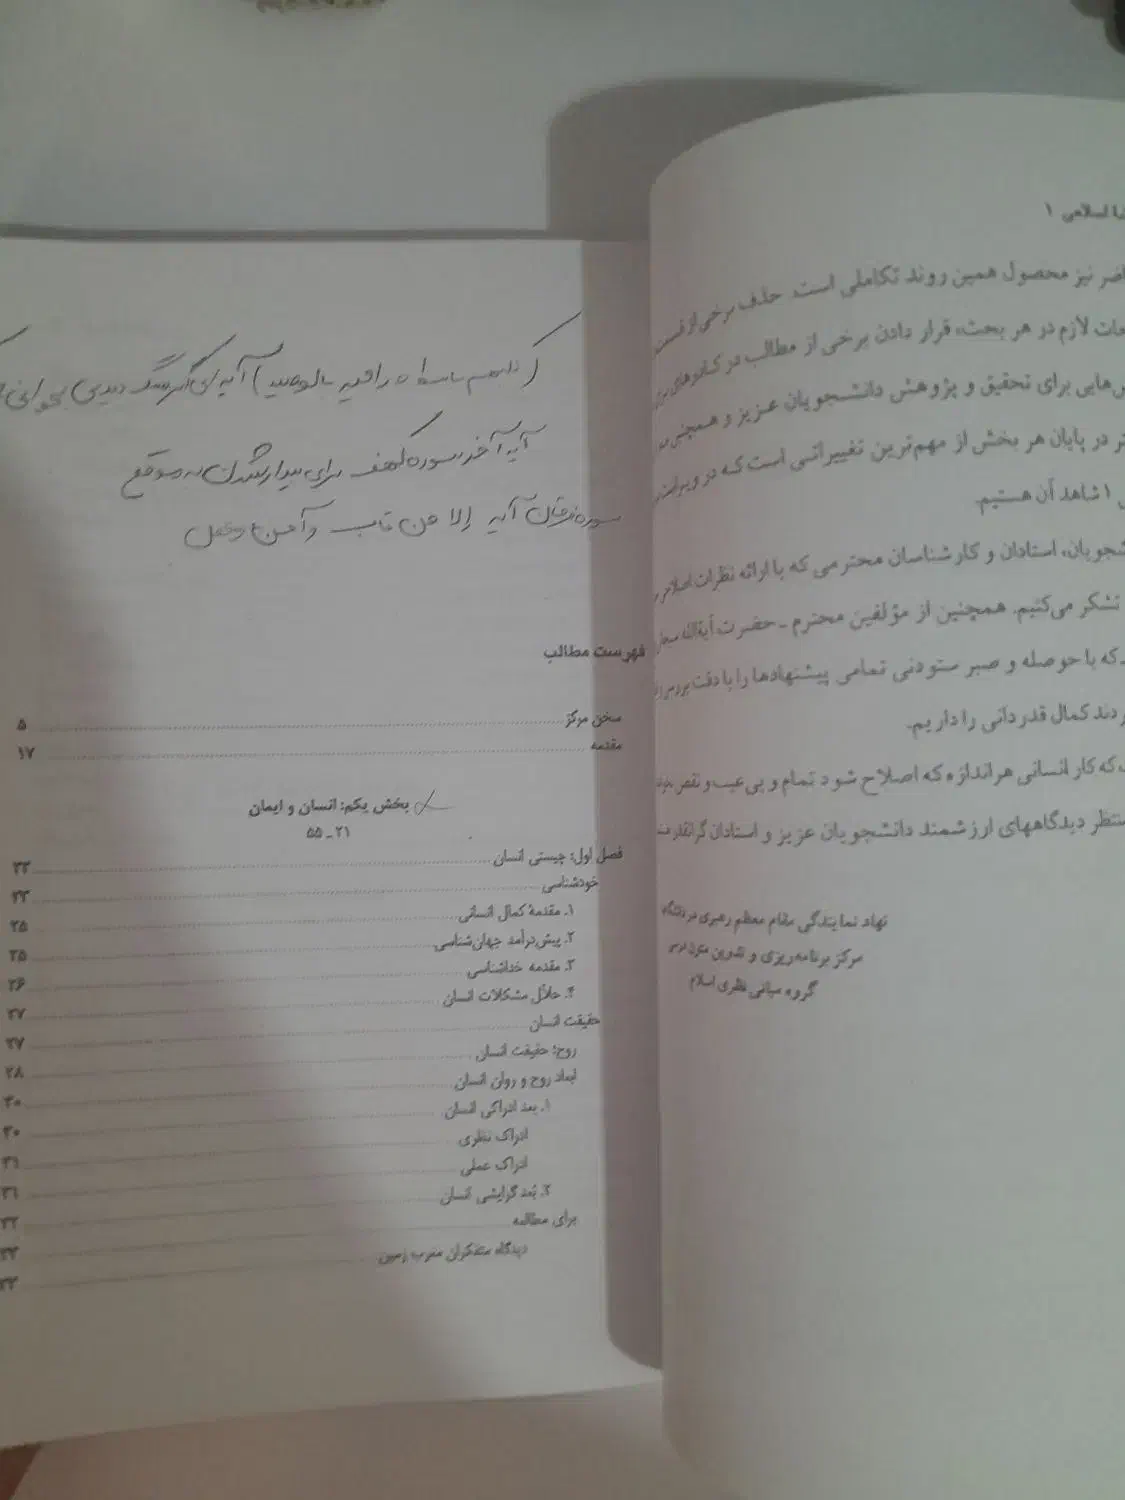 اسلامی ۱
نیز محصول همین روند تکاملی است. حذف برخی از
لازم در هر بحث، قرار دادن برخی از مطالب در کادرهای
برای تحقیق و پژوهش دانشجویان عزیز و همچنین
در پایان هر بخش از مهم‌ترین تغییراتی است که در
۱ شاهد آن هستیم.
استادان و کارشناسان محترمی که با ارائه نظرات
تشکر می‌کنیم. همچنین از مؤلفین محترم ـ حضرت آیةالله
که با حوصله و صبر ستودنی تمامی پیشنهادها را با دقت
کمال قدردانی را داریم.
که کار انسانی هر اندازه که اصلاح شود تمام و بی‌عیب و نقص
دیدگاههای ارزشمند دانشجویان عزیز و استادان گرانقدر
نهاد نمایندگی مقام معظم رهبری در
مرکز برنامه‌ریزی و تدوین متون درسی
گروه مبانی نظری اسلام
(وکلبهم باسط ذراعیه بالوصید) آیه‌ای اگر سگ دیدی بخوانی
آیه آخر سوره کهف برای بیدار شدن به موقع
سوره فرقان آیه إلا من تاب وآمن وعمل
فهرست مطالب
سخن مرکز ۵
مقدمه ۱۷
بخش یکم: انسان و ایمان
۲۱ ـ ۵۵
فصل اول: چیستی انسان ۲۳
خودشناسی ۲۳
۱. مقدمۀ کمال انسانی ۲۵
۲. پیش‌درآمد جهان‌شناسی ۲۵
۳. مقدمه خداشناسی ۲۶
۴. حلاّل مشکلات انسان ۲۷
حقیقت انسان ۲۷
روح؛ حقیقت انسان ۲۸
ابعاد روح و روان انسان ۳۰
۱. بعد ادراکی انسان ۳۰
ادراک نظری ۳۱
ادراک عملی ۳۱
۲. بُعد گرایشی انسان ۳۲
برای مطالعه ۳۳
دیدگاه متفکران مغرب زمین ۳۳